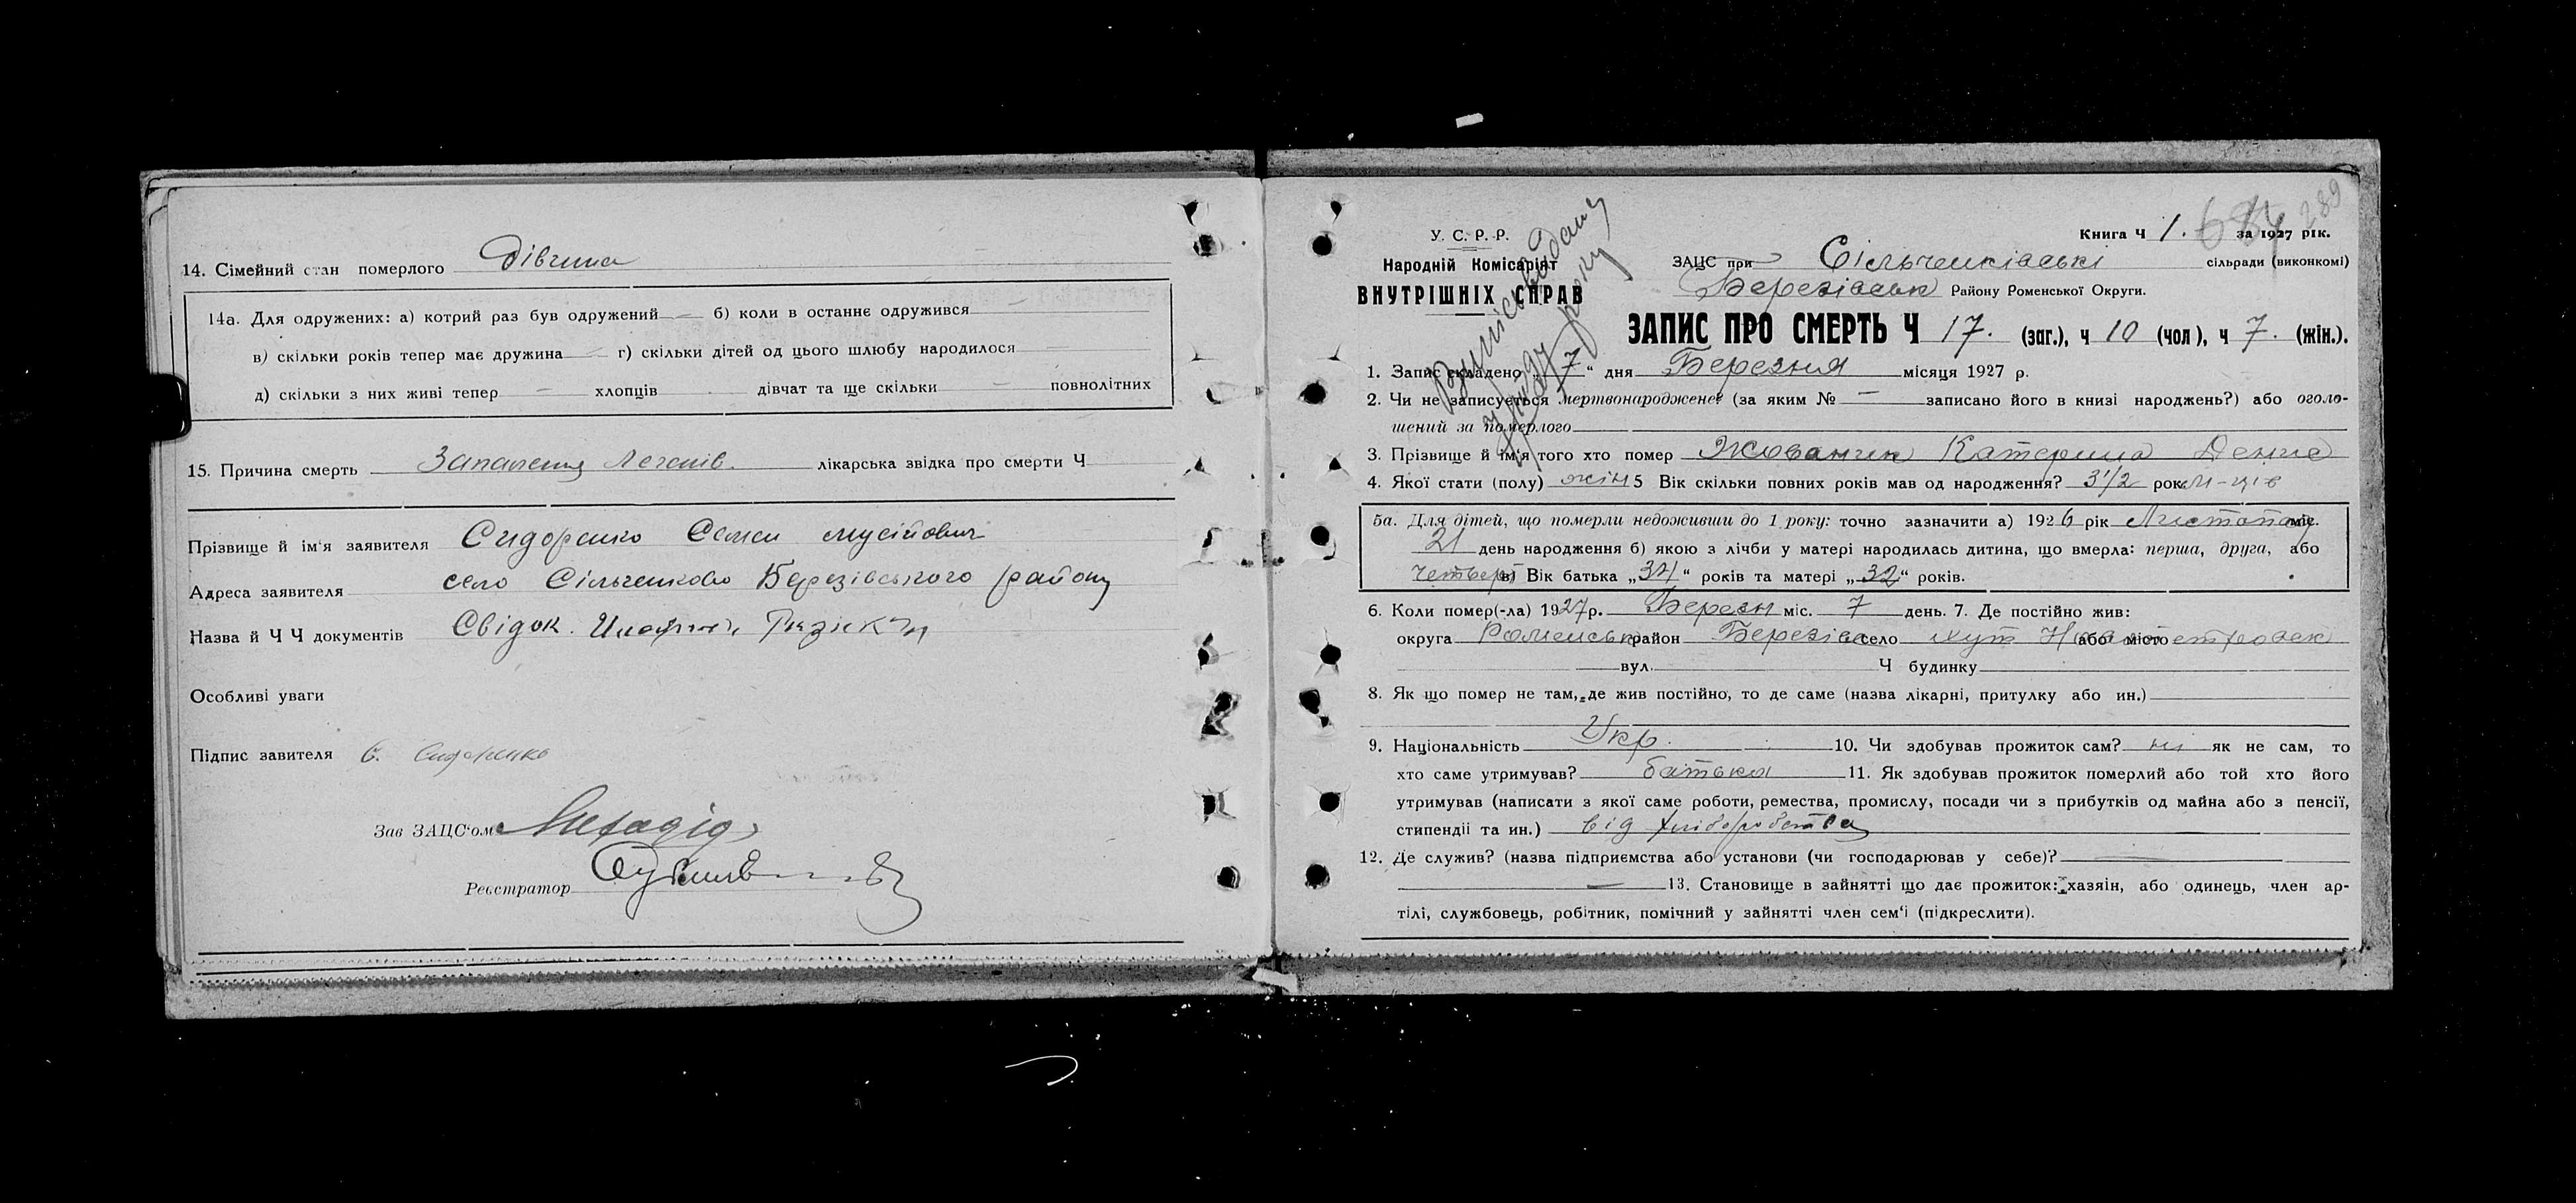 14. Сімейний стан померлого Дівчина
14а. Для одружених: а) котрий раз був одружений — б) коли в останнє одружився —
в) скільки років тепер має дружина — г) скільки дітей од цього шлюбу народилося
д) скільки з них живі тепер — хлопців дівчат та ще скільки — повнолітних
15. Причина смерть Запалення Легенів. лікарська звідка про смерти Ч
Прізвище й ім'я заявителя Сидоренко Семен мусійович
Адреса заявителя село Сільченково Березівського району
Назва й Ч Ч документів Свідок.
Особливі уваги
Підпис завителя С. Сидоренко
Зав ЗАЦС'ом
Реєстратор
289
У. С. Р. Р.
Книга Ч 1. за 1927 рік.
Народній Комісаріят
ЗАЦС при Сільченківські сільради (виконкомі)
ВНУТРІШНІХ СПРАВ
Березівськ Району Роменської Округи.
ЗАПИС ПРО СМЕРТЬ Ч 17. (заг.), ч 10 (чол), ч 7. (жін.).
1. Запис складено „7“ дня Березня місяця 1927 р.
2. Чи не записується мертвонароджене? (за яким № — записано його в книзі народжень?) або оголо-
шений за померлого
3. Прізвище й ім'я того хто помер Катерина
4. Якої стати (полу) жін 5 Вік скільки повних років мав од народження? 3 1/2 рок. м-ців
5а. Для дітей, що померли недоживши до 1 року: точно зазначити а) 1926 рік Листопаду міс.
21 день народження б) якою з лічби у матері народилась дитина, що вмерла: перша, друга, або
четверт в) Вік батька „34“ років та матері „32“ років.
6. Коли помер(-ла) 1927 р. Березн міс. 7 день. 7. Де постійно жив:
округа Роменськ район Березівс село хут або місто
вул. Ч будинку
8. Як що помер не там, де жив постійно, то де саме (назва лікарні, притулку або ин.)
9. Національність Укр. 10. Чи здобував прожиток сам? ні як не сам, то
хто саме утримував? батьки 11. Як здобував прожиток померлий або той хто його
утримував (написати з якої саме роботи, ремества, промислу, посади чи з прибутків од майна або з пенсії,
стипендії та ин.) від хліборобства
12. Де служив? (назва підприємства або установи (чи господарював у себе)?
— 13. Становище в зайнятті що дає прожиток: хазяін, або одинець, член ар-
тілі, службовець, робітник, помічний у зайнятті член сем'і (підкреслити).